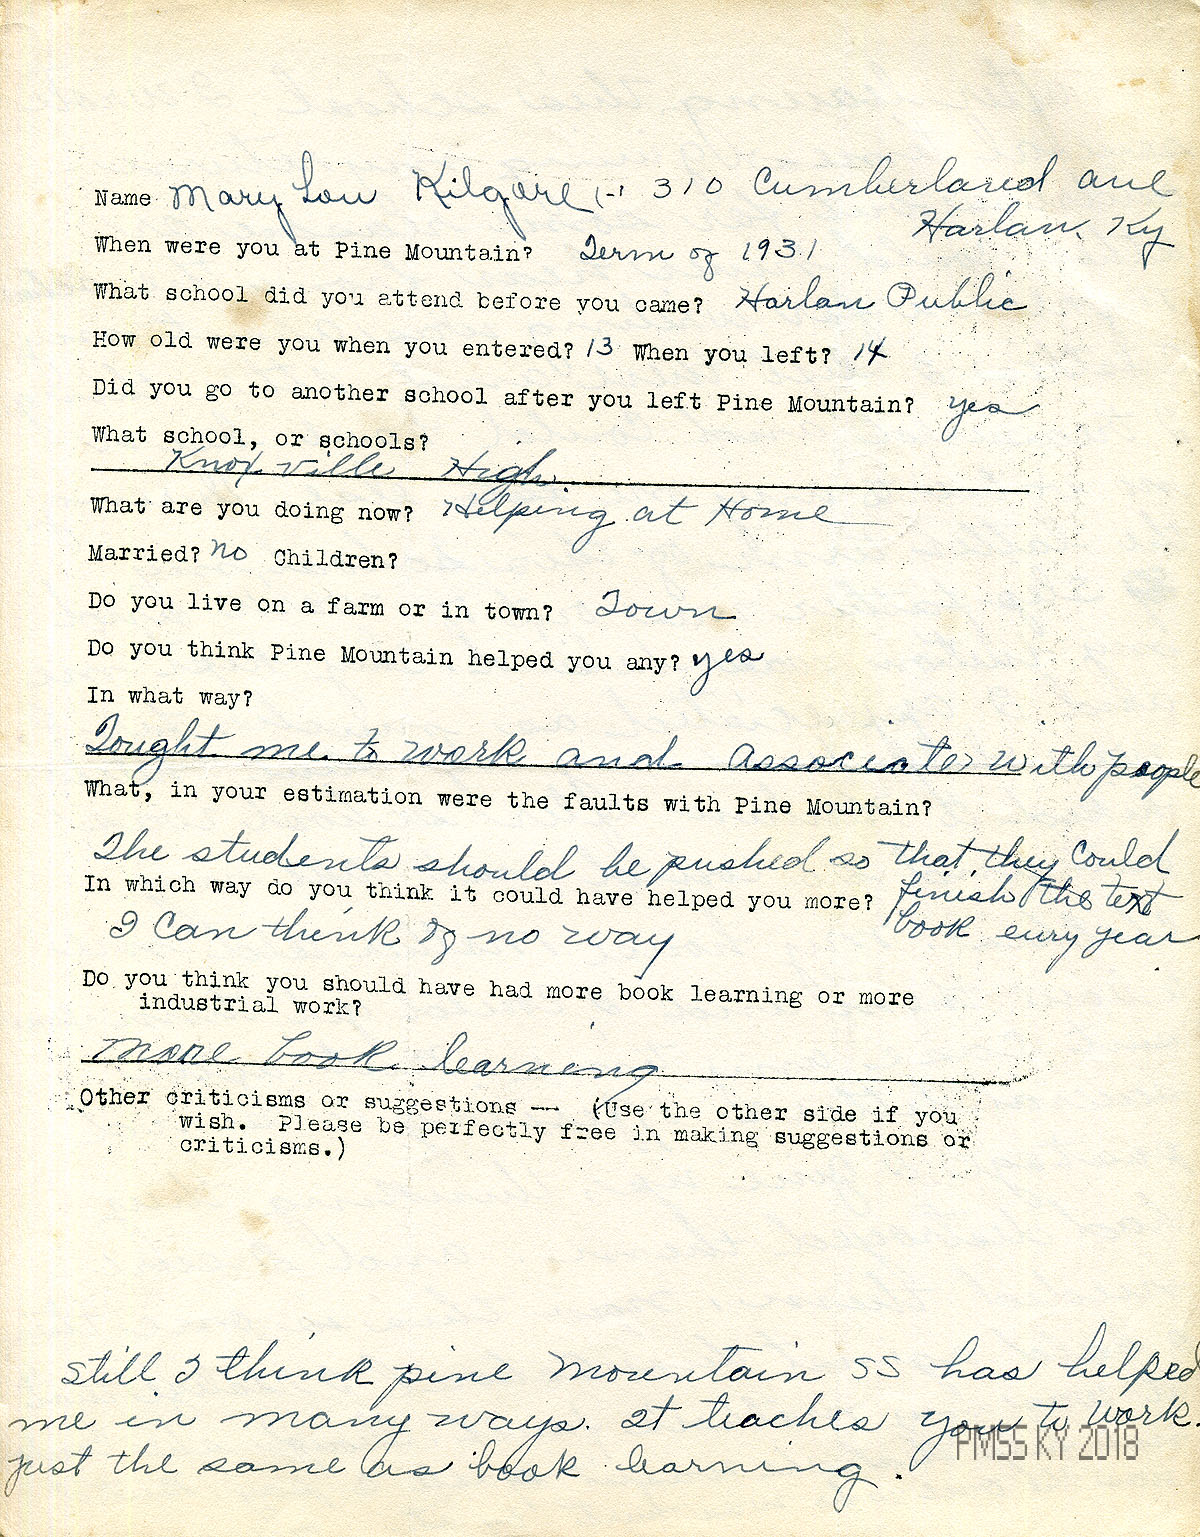 Name Mary Lou Kilgore (-1 310 Cumberland ave
Harlan, Ky
When were you at Pine Mountain? Term of 1931
What school did you attend before you came? Harlan Public
How old were you when you entered? 13 When you left? 14
Did you go to another school after you left Pine Mountain? yes
What school, or schools?
Knoxville High.
What are you doing now? Helping at Home
Married? no Children?
Do you live on a farm or in town? Town
Do you think Pine Mountain helped you any? yes
In what way?
Tought me to work and associate with people
What, in your estimation were the faults with Pine Mountain?
The students should be pushed so that they could
finish the text
book eury year
In which way do you think it could have helped you more?
I can think of no way
Do you think you should have had more book learning or more
industrial work?
more book learning
Other criticisms or suggestions -- (Use the other side if you
wish. Please be perfectly free in making suggestions or
criticisms.)
still I think pine mountain SS has helped
me in many ways. It teaches you to work.
just the same as book learning.
PMSS KY 2018